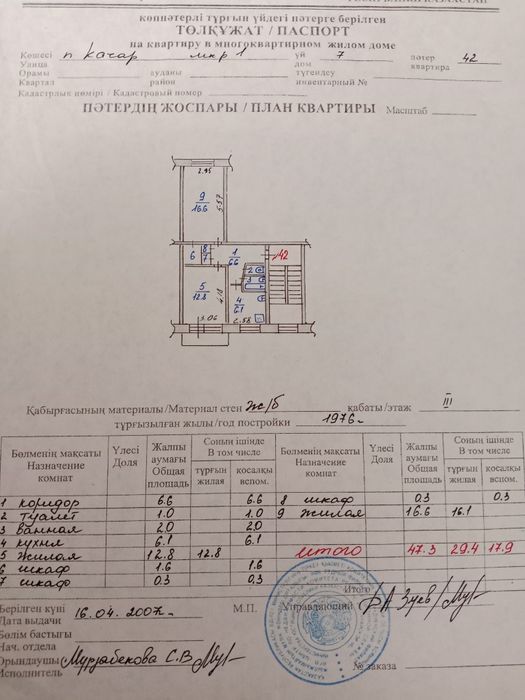 көппәтерлі тұрғын үйдегі пәтерге берілген
ТӨЛҚҰЖАТ / ПАСПОРТ
на квартиру в многоквартирном жилом доме
Көшесі п Качар мкр 1 үй 7 пәтер 42
Улица дом квартира
Орамы ауданы түгендеу
Квартал район инвентарный №
Кадастрлық нөмірі / Кадастровый номер
ПӘТЕРДІҢ ЖОСПАРЫ / ПЛАН КВАРТИРЫ Масштаб
2.95
9
16.6
5.57
6 8 7 1 6.6 42
2
3
5
12.8
4.18
4
6.1
3.06 2.58
Қабырғасының материалы/Материал стен ж/б қабаты/этаж III
тұрғызылған жылы/год постройки 1976г
Бөлменің мақсаты Назначение комнат Үлесі Доля Жалпы аумағы Общая площадь Соның ішінде В том числе тұрғын жилая қосалқы вспом. Бөлменің мақсаты Назначение комнат Үлесі Доля Жалпы аумағы Общая площадь Соның ішінде В том числе тұрғын жилая қосалқы вспом.
1 коридор 6.6 6.6 8 шкаф 0.3 0.3
2 туалет 1.0 1.0 9 жилая 16.6 16.1
3 ванная 2.0 2.0
4 кухня 6.1 6.1
5 жилая 12.8 12.8 итого 47.3 29.4 17.9
6 шкаф 1.6 1.6
7 шкаф 0.3 0.3
Итого
Берілген күні 16.04.2007г. М.П. Управляющий РА Зуев
Дата выдачи
Бөлім бастығы
Нач. отдела
Орындаушы Мурзабекова С.В
Исполнитель
№ заказа